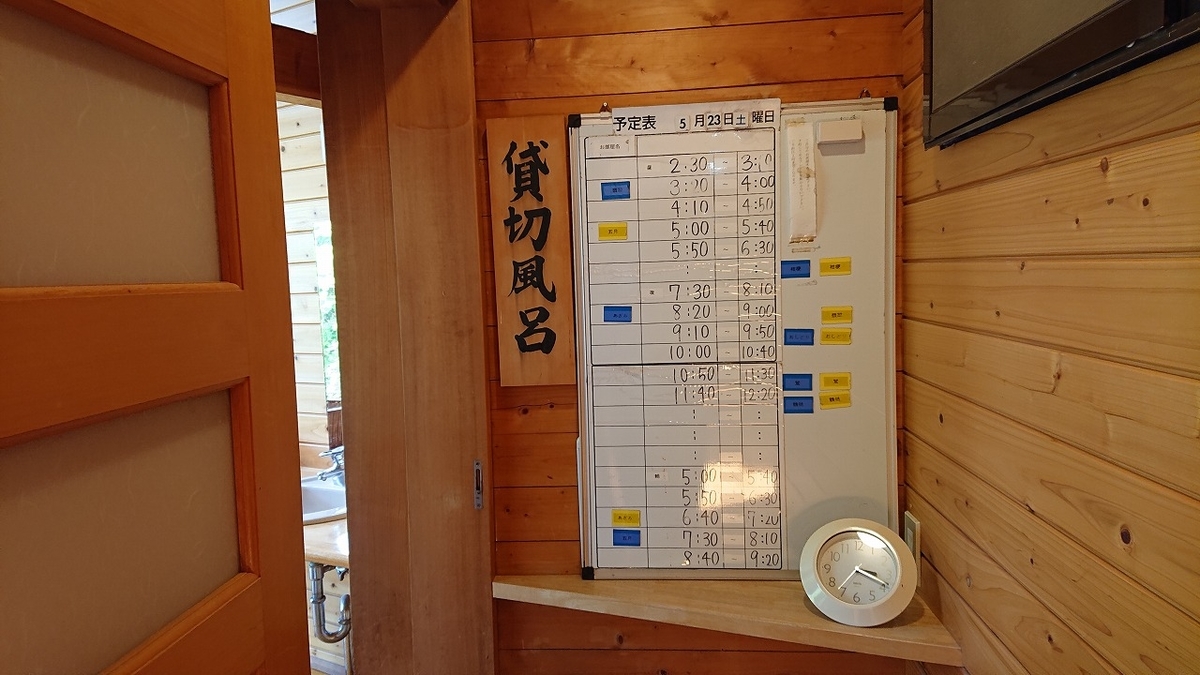 貸切風呂
予定表 5月23日土曜日
お部屋名
2:30 ~ 3:10
3:20 ~ 4:00
4:10 ~ 4:50
5:00 ~ 5:40
5:50 ~ 6:30
:
夜 7:30 ~ 8:10
8:20 ~ 9:00
9:10 ~ 9:50
10:00 ~ 10:40
10:50 ~ 11:30
11:40 ~ 12:20
: ~ :
: ~ :
: ~ :
朝 5:00 ~ 5:40
5:50 ~ 6:30
6:40 ~ 7:20
7:30 ~ 8:10
8:40 ~ 9:20
桔梗
12
11
10
9
8
7
6
5